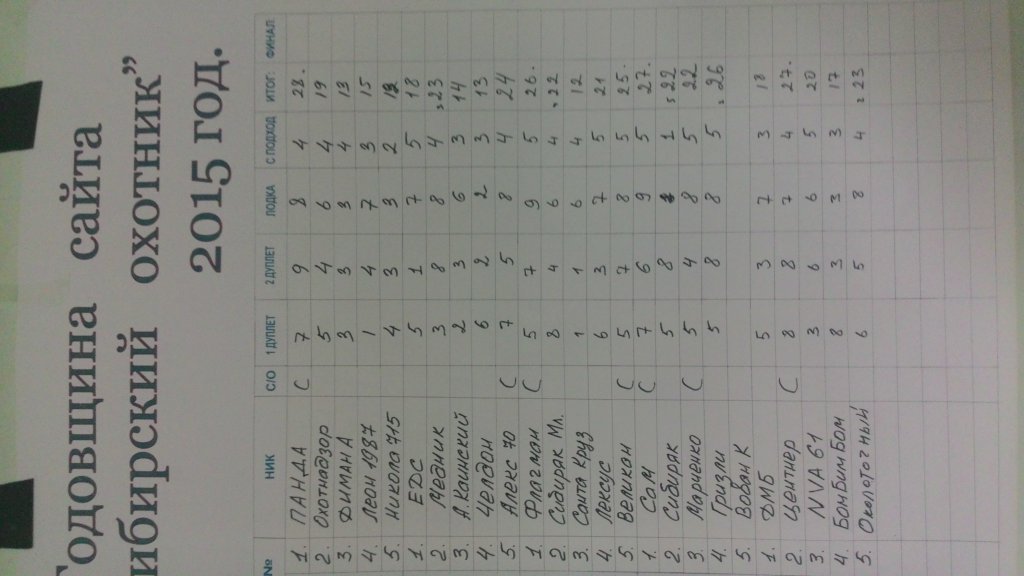 Годовщина сайта
ибирский охотник”
2015 год.
№ НИК С/О 1 ДУПЛЕТ 2 ДУПЛЕТ ЛОДКА С ПОДХОД ИТОГ: ФИНАЛ:
1. ПАНДА С 7 9 8 4 28.
2. Охотнадзор 5 4 6 4 19
3. ДИМАН А 3 3 3 4 13
4. Леон 1987 1 4 7 3 15
5. Никола 715 4 3 3 2 12
1. EDC 5 1 7 5 18
2. Медник 3 8 8 4 23
3. А. Каинский 2 3 6 3 14
4. Челдон 6 2 2 3 13
5. Алекс 70 С 7 5 8 4 24
1. Флагман С 5 7 9 5 26.
2. Сибиряк Мл. 8 4 6 4 22
3. Санта Круз 1 1 6 4 12
4. Лексус 6 3 7 5 21
5. Великан С 5 7 8 5 25.
1. СоМ С 7 6 9 5 27.
2. Сибиряк 5 8 1 22
3. Марченко С 5 4 8 5 22
4. Гризли 5 8 8 5 26
5. Вован К
1. ДМБ 5 3 7 3 18
2. Центнер С 8 8 7 4 27.
3. NVA 61 3 6 6 5 20
4. БомБимБом 8 3 3 3 17
5. Околоточный 6 5 8 4 23